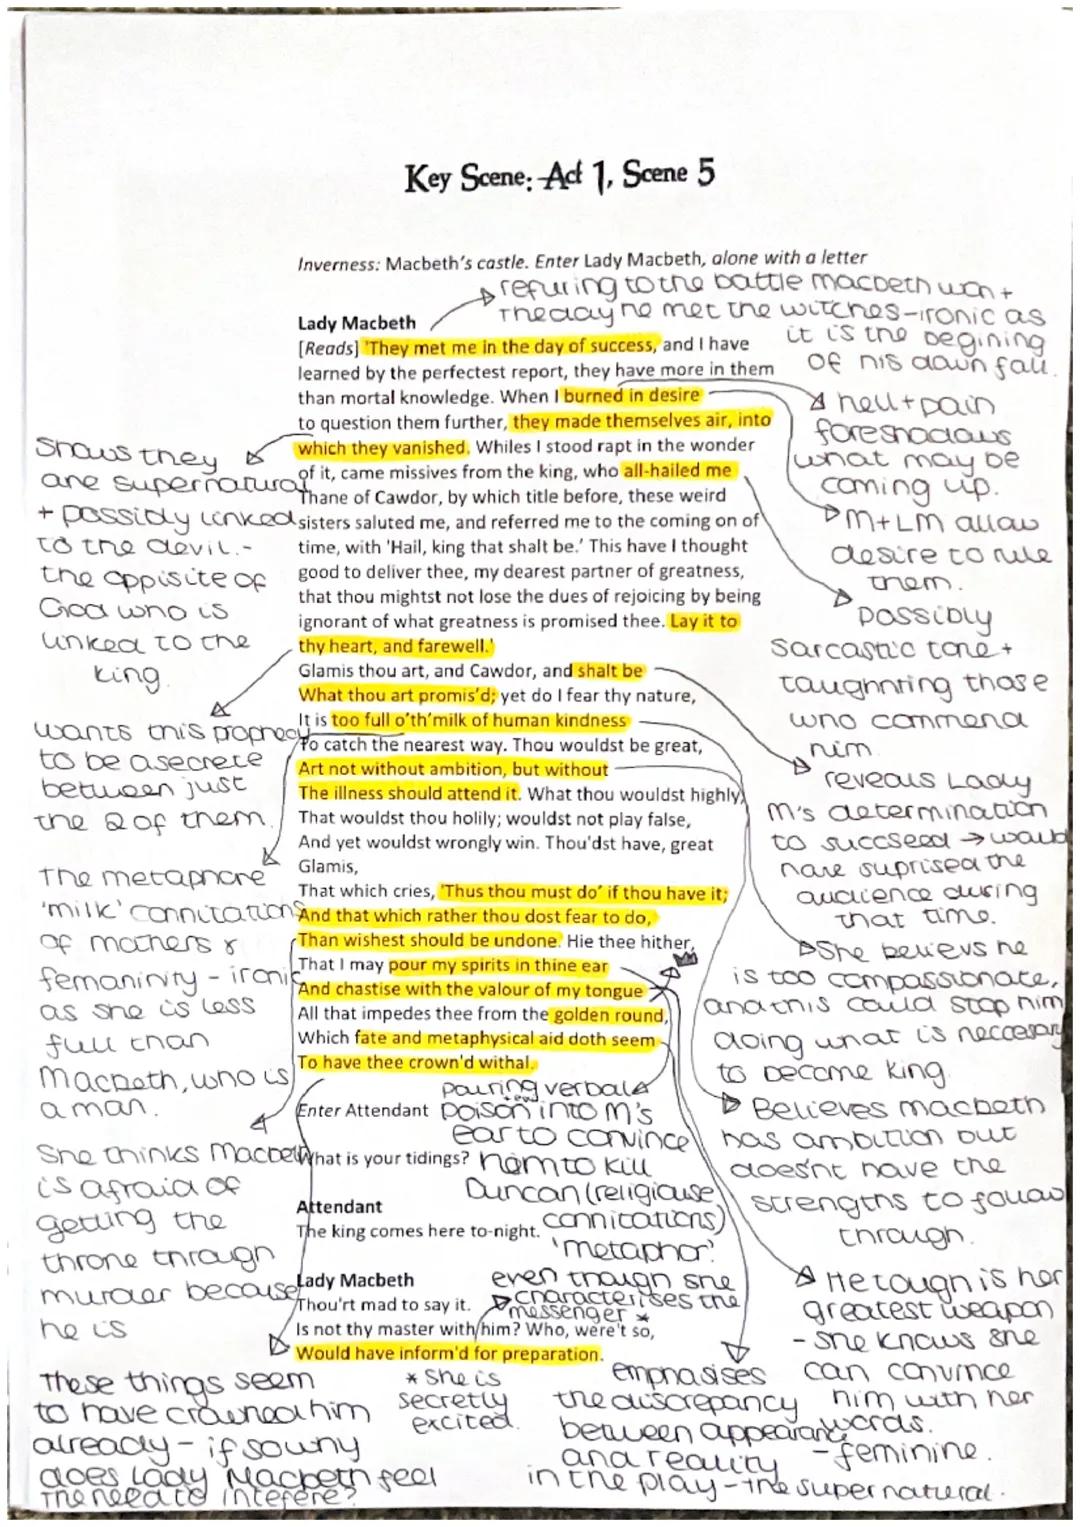 Key Scene: Act 1, Scene 5
Inverness: Macbeth's castle. Enter Lady Macbeth, alone with a letter
refuring to the battle macbeth won +
the day he met the witches-ironic as
it is the begining
of his down fall.
Lady Macbeth
[Reads] 'They met me in the day of success, and I have
learned by the perfectest report, they have more in them
than mortal knowledge. When I burned in desire
to question them further, they made themselves air, into
which they vanished. Whiles I stood rapt in the wonder
of it, came missives from the king, who all-hailed me
Thane of Cawdor, by which title before, these weird
sisters saluted me, and referred me to the coming on of
time, with 'Hail, king that shalt be.' This have I thought
good to deliver thee, my dearest partner of greatness,
that thou mightst not lose the dues of rejoicing by being
ignorant of what greatness is promised thee. Lay it to
thy heart, and farewell.'
Glamis thou art, and Cawdor, and shalt be
What thou art promis'd; yet do I fear thy nature,
It is too full o'th'milk of human kindness
To catch the nearest way. Thou wouldst be great,
Art not without ambition, but without
The illness should attend it. What thou wouldst highly,
That wouldst thou holily; wouldst not play false,
And yet wouldst wrongly win. Thou'dst have, great
Glamis,
That which cries, 'Thus thou must do' if thou have it;
And that which rather thou dost fear to do,
Than wishest should be undone. Hie thee hither,
That I may pour my spirits in thine ear
And chastise with the valour of my tongue
All that impedes thee from the golden round,
Which fate and metaphysical aid doth seem
To have thee crown'd withal.
Enter Attendant
What is your tidings?
Attendant
The king comes here to-night.
Lady Macbeth
Thou'rt mad to say it.
Is not thy master with him? Who, were't so,
Would have inform'd for preparation.
Shows they
are supernatural
+ possibly linked
to the devil.-
the oppisite of
God who is
linked to the
king.
wants this prophecy
to be a secrete
between just
the 2 of them.
The metaphore
'milk' connitations
of mothers &
femaninity - ironic
as she is less
full than
Macbeth, who is
a man.
She thinks Macbeth
is afraid of
getting the
throne through
murder because
he is
These things seem
to have crowned him
already - if so why
does Lady Macbeth feel
the need to intefere?
hell + pain
foreshadows
what may be
coming up.
M+LM allow
desire to rule
them.
possibly
sarcastic tone +
taughnting those
who commend
him.
reveals Lady
M's determination
to succseed → would
have suprised the
audience during
that time.
She believs he
is too compassionate,
and this could stop him
doing what is neccesary
to become king.
Believes macbeth
has ambition but
does'nt have the
strengths to follow
through.
He tough is her
greatest weapon
- she knows she
can convince
him with her
words.
- feminine.
pouring verbal
poison into M's
ear to convince
him to kill
Duncan (religiouse
connitations)
'metaphor?
even though she
characterises the
messenger *
* she is
secretly
excited.
emphasises
the discrepancy
between appearance
and reality
in the play-the supernatural.